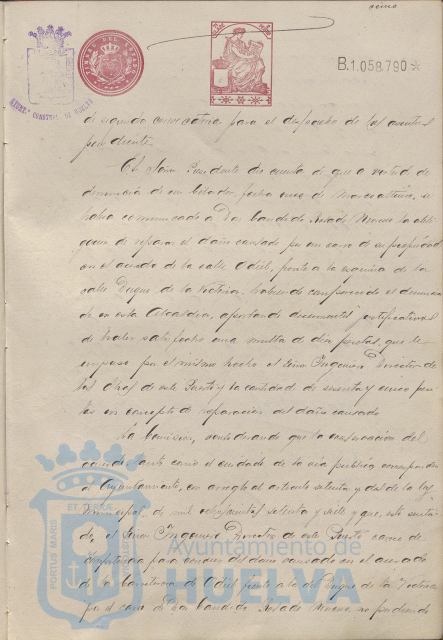 ocino
TIMBRE DEL ESTADO
B.1.058.790
AYUNT.º CONSTNAL DE HUELVA
de segunda convocatoria para el despacho de los asuntos
pendientes.
El Señor Presidente dio cuenta de que a virtud de
denuncia de un Celador, fecha once de Marzo último, se
había comunicado a Don Candido Rosado Moreno la obli-
gación de reparar el daño causado por un carro de su propiedad
en el acerado de la calle Odiel, frente a la esquina de la
calle Duque de la Victoria, habiendo comparecido el denuncia-
do en esta Alcaldía, aportando documentos justificativos
de haber satisfecho una multa de diez pesetas, que le
impuso por el mismo hecho el Señor Ingeniero Director de
las Obras de este Puerto y la cantidad de sesenta y cinco pese-
tas en concepto de reparación del daño causado.
La Comisión, considerando que la conservación del
acerado tanto como el cuidado de la vía pública corresponden
al Ayuntamiento, con arreglo al artículo setenta y dos de la ley
Municipal de mil ochocientos setenta y siete y que, este sentado,
el Señor Ingeniero Director de este Puerto carece de
competencia para conocer del daño causado en el acerado
de la Calle de Odiel frente a la del Duque de la Victoria
por el carro de Don Candido Rosado Moreno, no pudiendo
PORTUS MARIS
ET TERRAE
Ayuntamiento de
HUELVA